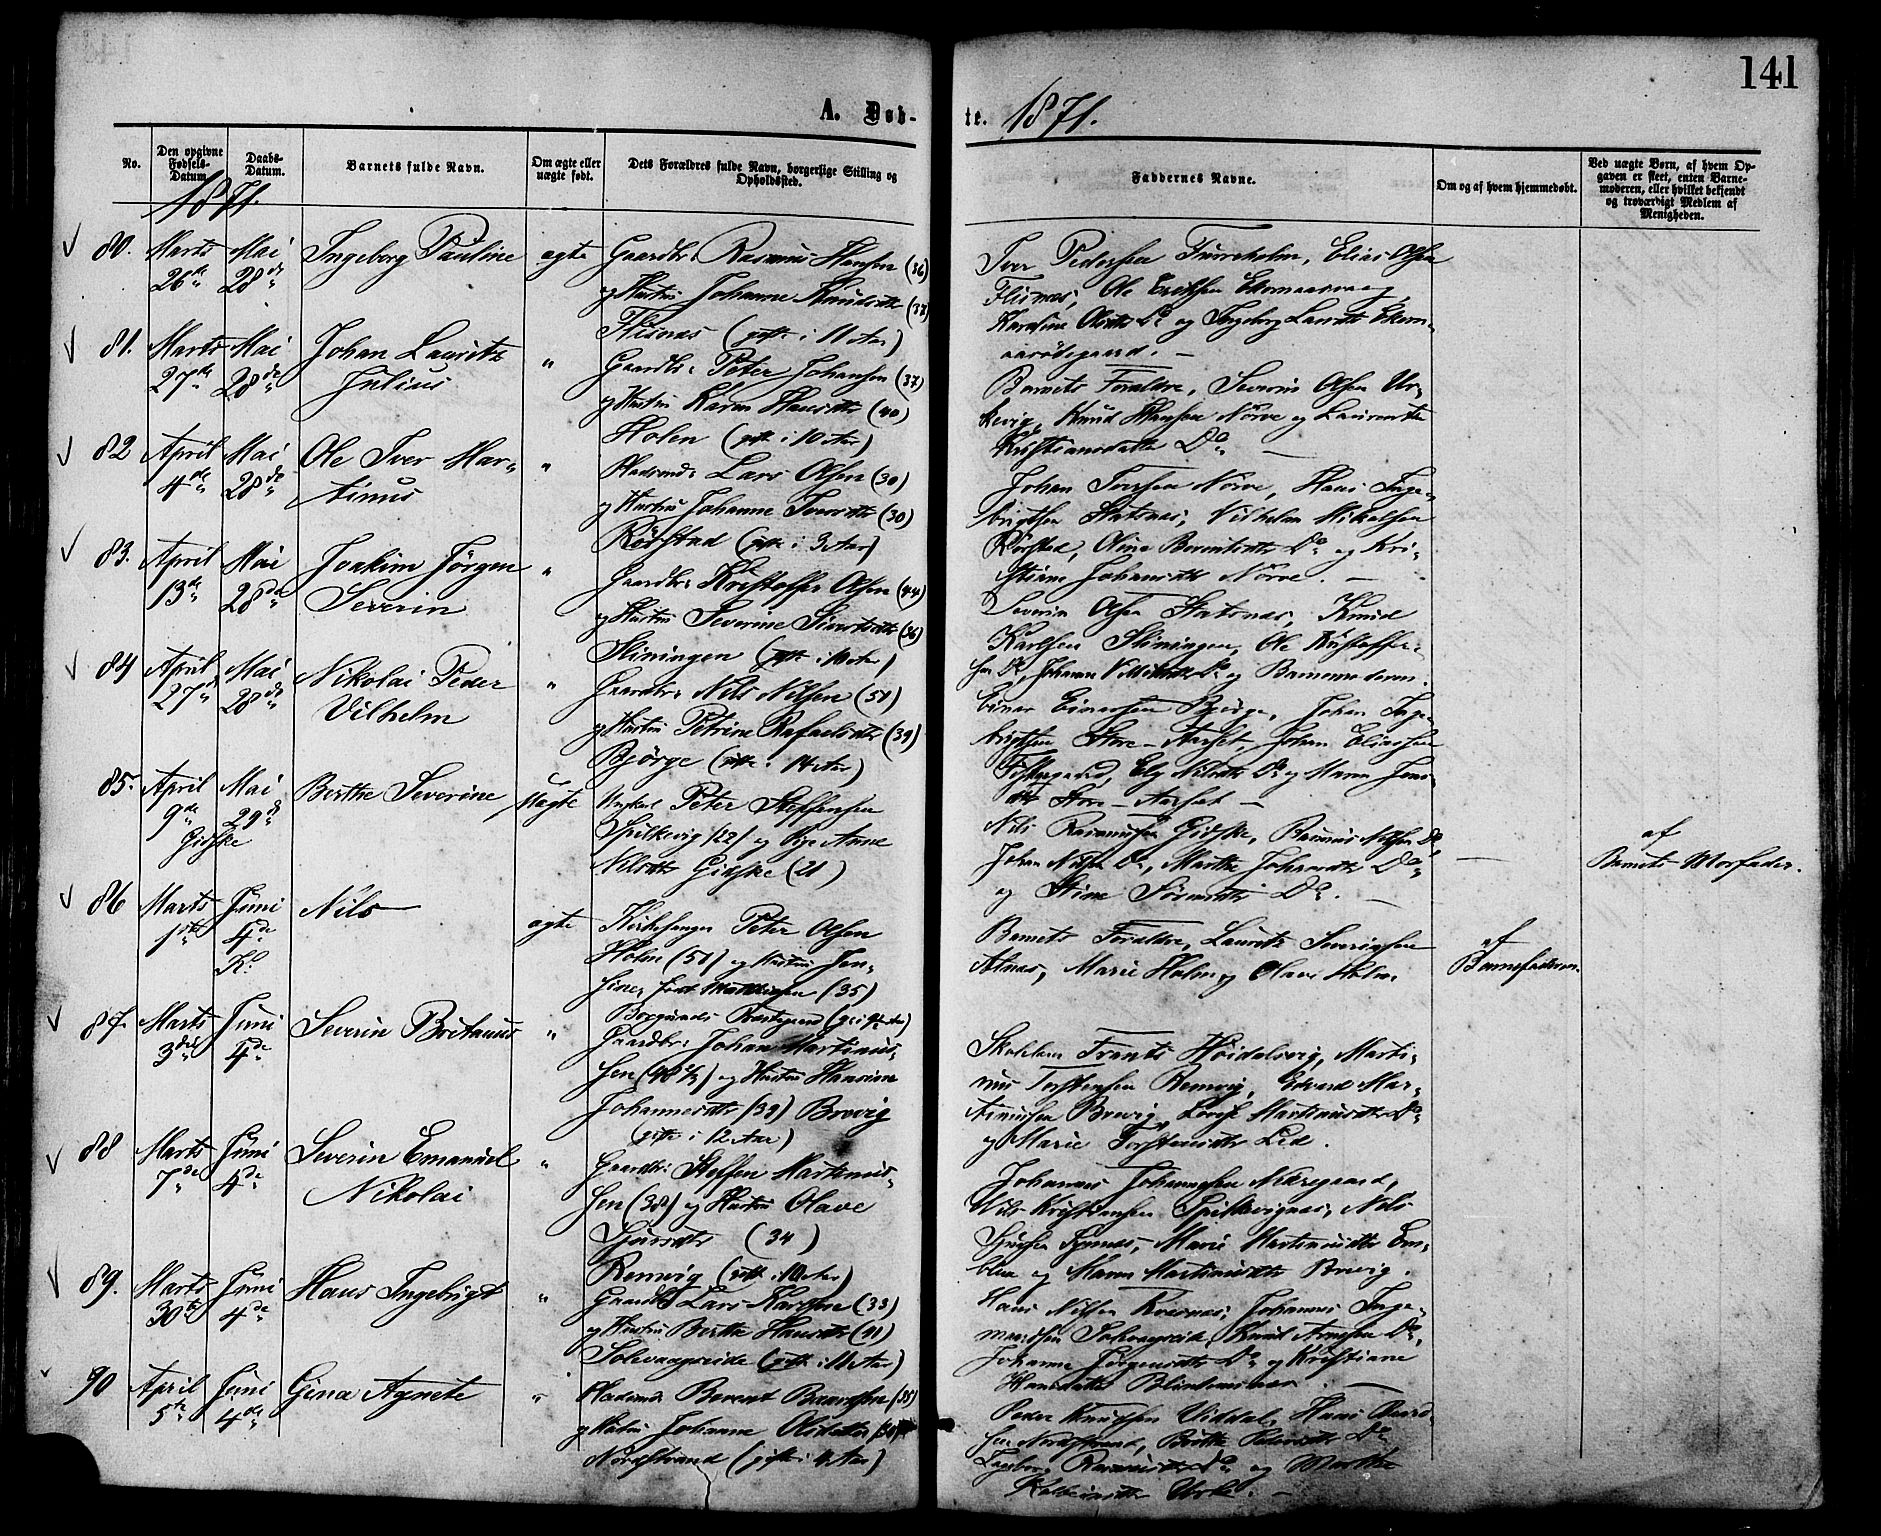 141
A. Døb-
te. 1871.
No.
Den opgivne Fødsels-Datum.
Daabs-Datum.
Barnets fulde Navn.
Om ægte eller uægte født.
Dets Forældres fulde Navn, borgerlige Stilling og Opholdssted.
Faddernes Navne.
Om og af hvem hjemmedøbt.
Ved uægte Børn, af hvem Opgaven er skeet, enten Barnemoderen, eller hvilket bekjendt og troværdigt Medlem af Menigheden.
1871.
80. Marts 26de Mai 28de Ingeborg Pauline ægte Gaardbr. Rasmus Hansen (36)
og Hustru Johanne Knudsdtr (37)
Flisnæs (gifte i 11 Aar)
Iver Pedersen Furreholm, Elias Olsen
Flisnæs, Ole Eriksen
Karoline Olsdtr Do og Ingeborg Larsdtr Ekorn-
aarødegaard. —
81. Marts 27de Mai 28de Johan Lauritz
Julius
" Gaardbr: Peter Johansen (37)
og Hustru Karen Hansdtr (40)
Holen (gifte i 10 Aar)
Barnets Forældre, Severin Olsen Ur-
kevig, Knud Hansen Nørve og Laurentse
Kristiansdatter Do —
82 April 4de Mai 28de Ole Iver Mar-
tinus
" Pladsmd: Lars Olsen (30)
og Hustru Johanne Iversdtr (30)
Rødstad (gifte i 3 Aar)
Johan Iversen Nørve, Hans Inge-
brigtsen Slatsnæs, Vilhelm Mikalsen
Rørsted, Oline Berentsdtr Do og Kri-
stiane Johansdtr Nørve. —
83. April 13de Mai 28de Joakim Jørgen
Severin
" Gaardbr: Kristoffer Olsen (44)
og Hustru Severine Sivertsdtr (36)
Slinningen (gifte i 10 Aar)
Severin Olsen Slatsnæs, Knud
Karlsen Slinningen, Ole Kristoffer-
sen Do, Johanne Do og Barnemoderen.
84 April 27de Mai 28de Nikolai Peder
Vilhelm
" Gaardbr: Nils Nilsen (51)
og Hustru Petrine Rafaelsdtr (39)
Bjørge (gifte i 14 Aar)
Einar Einarsen Bjørge, Johan Inge-
brigtsen Store-Aarset, Johan Eliassen
Elg Nilsdtr Do og Maren Jens-
dtr Store-Aarset —
85. April 9de Gidske Mai 29de Berthe Severine uægte Ungkarl Peter Steffensen
Spilkevig (22) og Pige Anne
Nilsdtr Gidske (21)
Nils Rasmussen Gidske, Rasmus Nilsen Do
Johan Nilsen Do, Marthe Johansdtr Do
og Stine Sørensdtr Do. —
—
af
Barnets Morfader.
86 Marts 1ste Juni 4de K. Nils ægte Kirkesanger Peter Olsen
Holm (51) og Hustru Jen-
sine, født Mathiesen (35)
Borgunds Præstegaard
Barnets Forældre, Laurits Severinsen
Alnæs, Marie Holm og Olave Holm.
af
Barnefaderen.
87. Marts 3die Juni 4de Severin Britanus " Gaardbr: Johan Martinus-
sen (40½) og Hustru Hansine
Johannesdtr (39) Brevig
(gifte i 12 Aar)
Skolelærer Frants Høidalsvig, Marti-
nus Torstensen Remvig, Edvard Mar-
tinussen Brevig, Lovise Martinusdtr Do
og Marie Torstensdtr Lid.
88 Marts 7de Juni 4de Severin Emanuel
Nikolai
" Gaardbr: Steffen Martinus-
sen (38) og Hustru Olave
Sjursdtr (34)
Remvig (gifte i 10 Aar)
Johannes Johannessen Mæregaard,
Nils Kristiansen Spilkevignæs, Nils
Marie Martinusdtr Em-
blem og Maren Martinusdtr Brevig.
89. Marts 30te Juni 4de Hans Ingebrigt " Gaardbr: Lars Karlsen (33)
og Hustru Berthe Hansdtr (41)
Solevaagseide (gifte i 11 Aar)
Hans Nilsen Johannes Inge-
Solevaagseide, Knut Arnesen Do,
Johanne Jørgensdtr Do og Kristiane
Hansdatter —
90 April 5te Juni 4de Gina Agnete " Pladsmd: Berent (35)
og Hustru Johanne Olsdatter
Nordstrand (gifte i 4 Aar)
Peder Knudsen Viddal, Hans
Nordstrand, Berthe Do
Ingeborg Rasmusdtr Do og Marthe
Urke. —